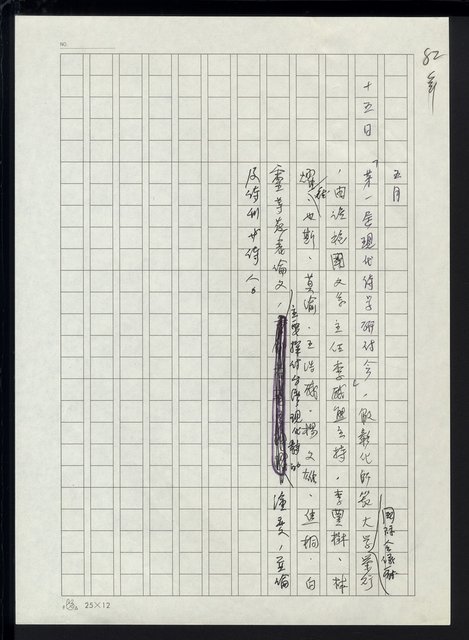 82年
NO.
五月
十五日「第一屆現代詩學研討會」,假彰化師範大學國際會議廳舉行
,由該校國文系主任李威熊主持。李豐楙、林
燿德、也斯、莫渝、王浩威、楊文雄、焦桐、白
靈等發表論文,主要探討台灣現代詩的演變,並論
及詩刊與詩人。
25×12